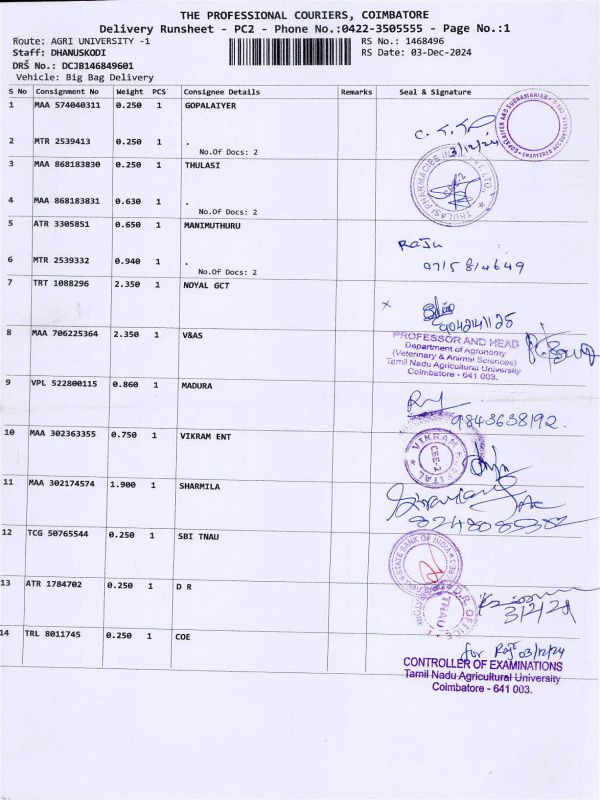 THE PROFESSIONAL COURIERS, COIMBATORE
Delivery Runsheet - PC2 - Phone No.:0422-3505555 - Page No.:1
Route: AGRI UNIVERSITY -1 RS No.: 1468496
Staff: DHANUSKODI RS Date: 03-Dec-2024
DRS No.: DCJB146849601
Vehicle: Big Bag Delivery
S No Consignment No Weight PCS Consignee Details Remarks Seal & Signature
1 MAA 574040311 0.250 1 GOPALAIYER
GOPALAIYER AND SUBRAMANIAN CHARTERED
3/12/24
2 MTR 2539413 0.250 1 .
No.Of Docs: 2
3 MAA 868183830 0.250 1 THULASI
THULASI PHARMACIES
4 MAA 868183831 0.630 1 .
No.Of Docs: 2
5 ATR 3305851 0.650 1 MANIMUTHURU
Raju
6 MTR 2539332 0.940 1 .
No.Of Docs: 2
7 TRT 1088296 2.350 1 NOYAL GCT
9042141125
8 MAA 706225364 2.350 1 V&AS
PROFESSOR AND HEAD
Department of Agronomy
(Veterinary & Animal Sciences)
Tamil Nadu Agricultural University
Coimbatore - 641 003.
9 VPL 522800115 0.860 1 MADURA
9843638192.
10 MAA 302363355 0.750 1 VIKRAM ENT
VIKRAM HOSPITAL
CBE-2
11 MAA 302174574 1.900 1 SHARMILA
12 TCG 50765544 0.250 1 SBI TNAU
STATE BANK OF INDIA
13 ATR 1784702 0.250 1 D R
TNAU
14 TRL 8011745 0.250 1 COE
for 03/12/24
CONTROLLER OF EXAMINATIONS
Tamil Nadu Agricultural University
Coimbatore - 641 003.